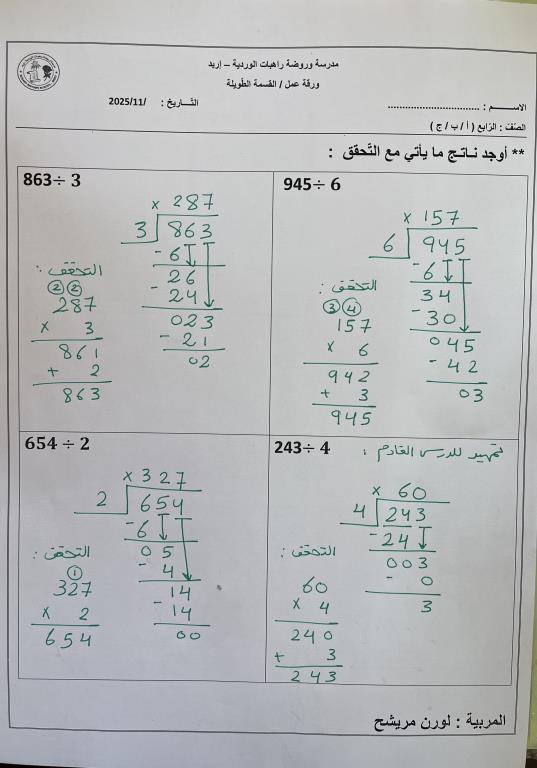 مدرسة وروضة راهبات الوردية – إربد
ورقة عمل / القسمة الطويلة
الاســـــم : ................................ التــاريخ : /2025/11
الصّف : الرّابع ( أ / ب / ج )
** أوجد نـاتـج ما يأتي مع التّحقق :
945÷ 6
× 157
6 945
- 6
34
- 30
045
- 42
03
التحقق :
3 4
157
× 6
942
+ 3
945
863÷ 3
× 287
3 863
- 6
26
- 24
023
- 21
02
التحقق :
2 2
287
× 3
861
+ 2
863
243÷ 4
تمهيد للدرس القادم :
× 60
4 243
- 24
003
- 0
3
التحقق :
60
× 4
240
+ 3
243
654 ÷ 2
× 327
2 654
- 6
05
- 4
14
- 14
00
التحقق :
1
327
× 2
654
المربية : لورن مريشح